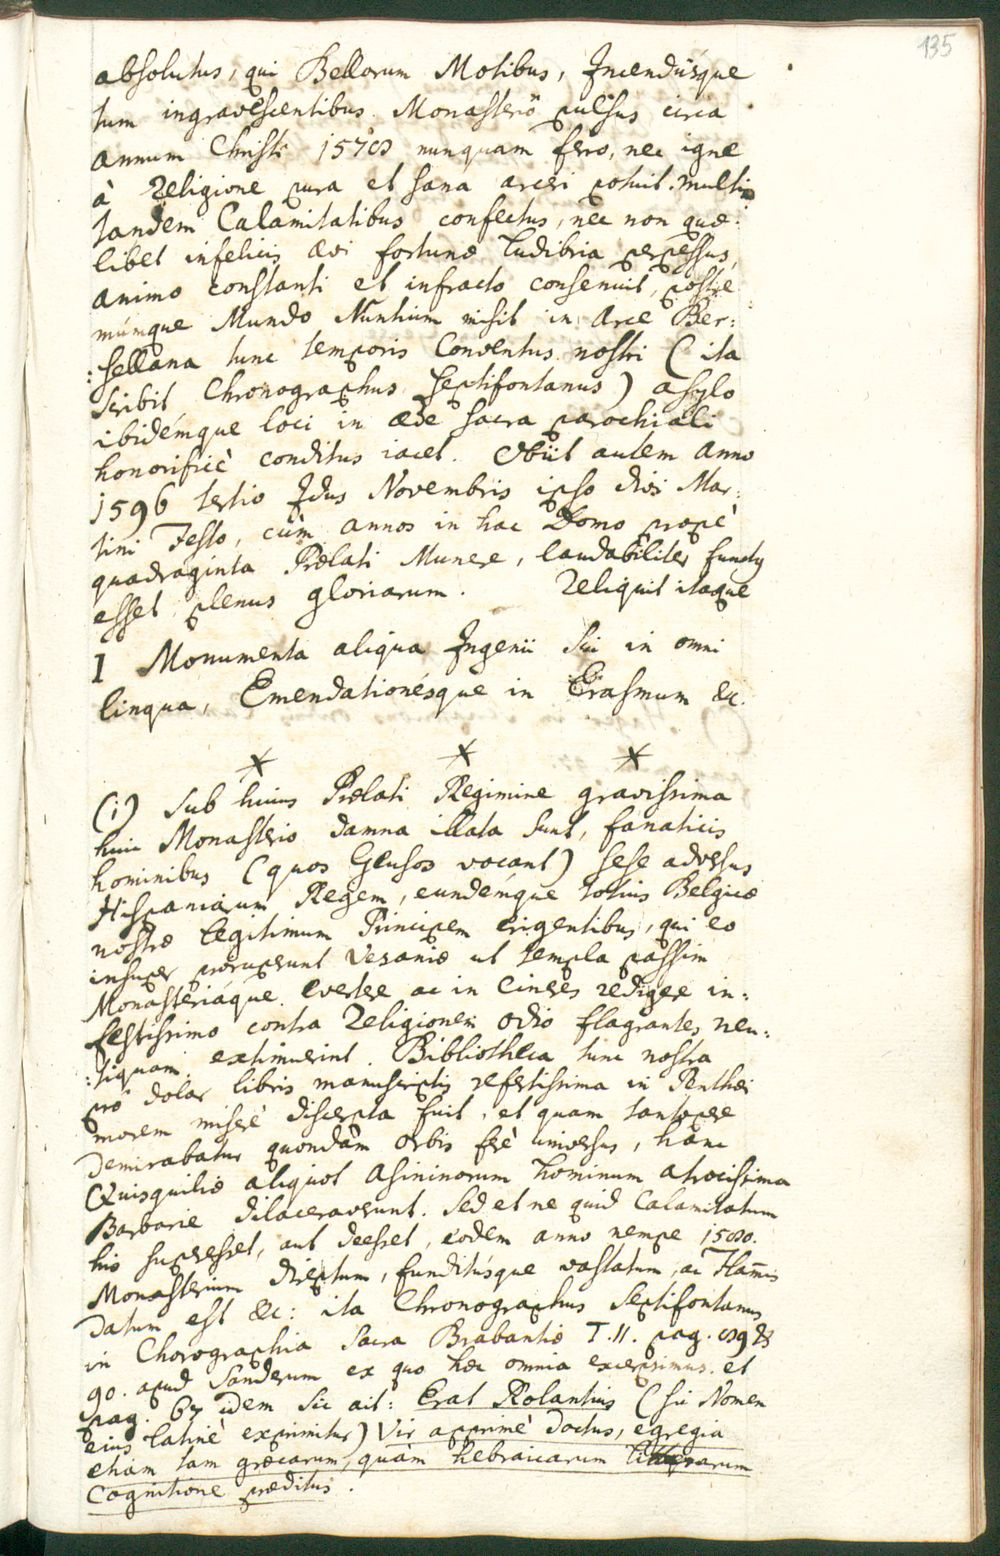 135
absolutus, qui Bellorum Motibus, Incendiisque
tum ingravescentibus Monasterio pulsus circa
annum Christi 1578 nunquam ferro, nec igne
à Religione pura et sana arceri potuit. multis
tandem Calamitatibus confectus, nec non quæ:
libet infelicis ævi fortunæ Ludibria perpessus,
animo constanti et infracto consenuit, postre
múmque Mundo Nuntium misit in Arce Ber:
:sellana tunc temporis Conventus nostri (ita
scribit Chronographus Septifontanus) asylo
ibidémque loci in æde sacra parochiali
honorificè conditus iacet. Obiit autem Anno
1596 tertio Idus Novembris ipso divi Mar:
tini Festo, cùm annos in hac Domo propè
quadraginta Prælati Munere, laudabiliter functus
esset plenus gloriarum. Reliquit itaque
I Monumenta aliqua Ingenii Sui in omni
lingua, Emendationésque in Erasmum &c.
(i) Sub huius Prælati Regimine gravissima
huic Monasterio damna illata sunt, fanaticis
hominibus (quos Geusos vocant) sese adversus
Hispaniarum Regem, eundémque totius Belgicæ
nostræ legitimum Principem erigentibus, qui eo
insuper proruperunt Vesaniæ ut templa passim
Monasteriáque evertere ac in Cineres redigere in:
festissimo contra Religionem odio flagrantes neu:
:tiquam extimuerint. Bibliotheca tunc nostra
pro dolor libris manuscriptis refertissima in Penthei
morem miserè discerpta fuit, et quam tantopere
demirabatur quondàm orbis ferè universus, hanc
Quisquiliæ aliquot Asininorum hominum atrocissima
Barbarie dilaceraverunt. Sed et ne quid Calamitatum
his superesset, aut deesset, eodem anno nempe 1580.
Monasterium direptum, funditúsque vastatum, ac Flam̄is
datum est &c: ita Chronographus Septifontanus
in Chorographia Sacra Brabantiæ T.II. pag. 89 &
90. apud Sanderum ex quo hæc omnia excerpsimus. et
pag. 67 idem sic ait: Erat Rolantius (sic Nomen
eius latinè exprimitur) Vir apprimè doctus, egregia
etiam tam græcarum, quàm hebraicarum litterarum
Cognitione præditus.